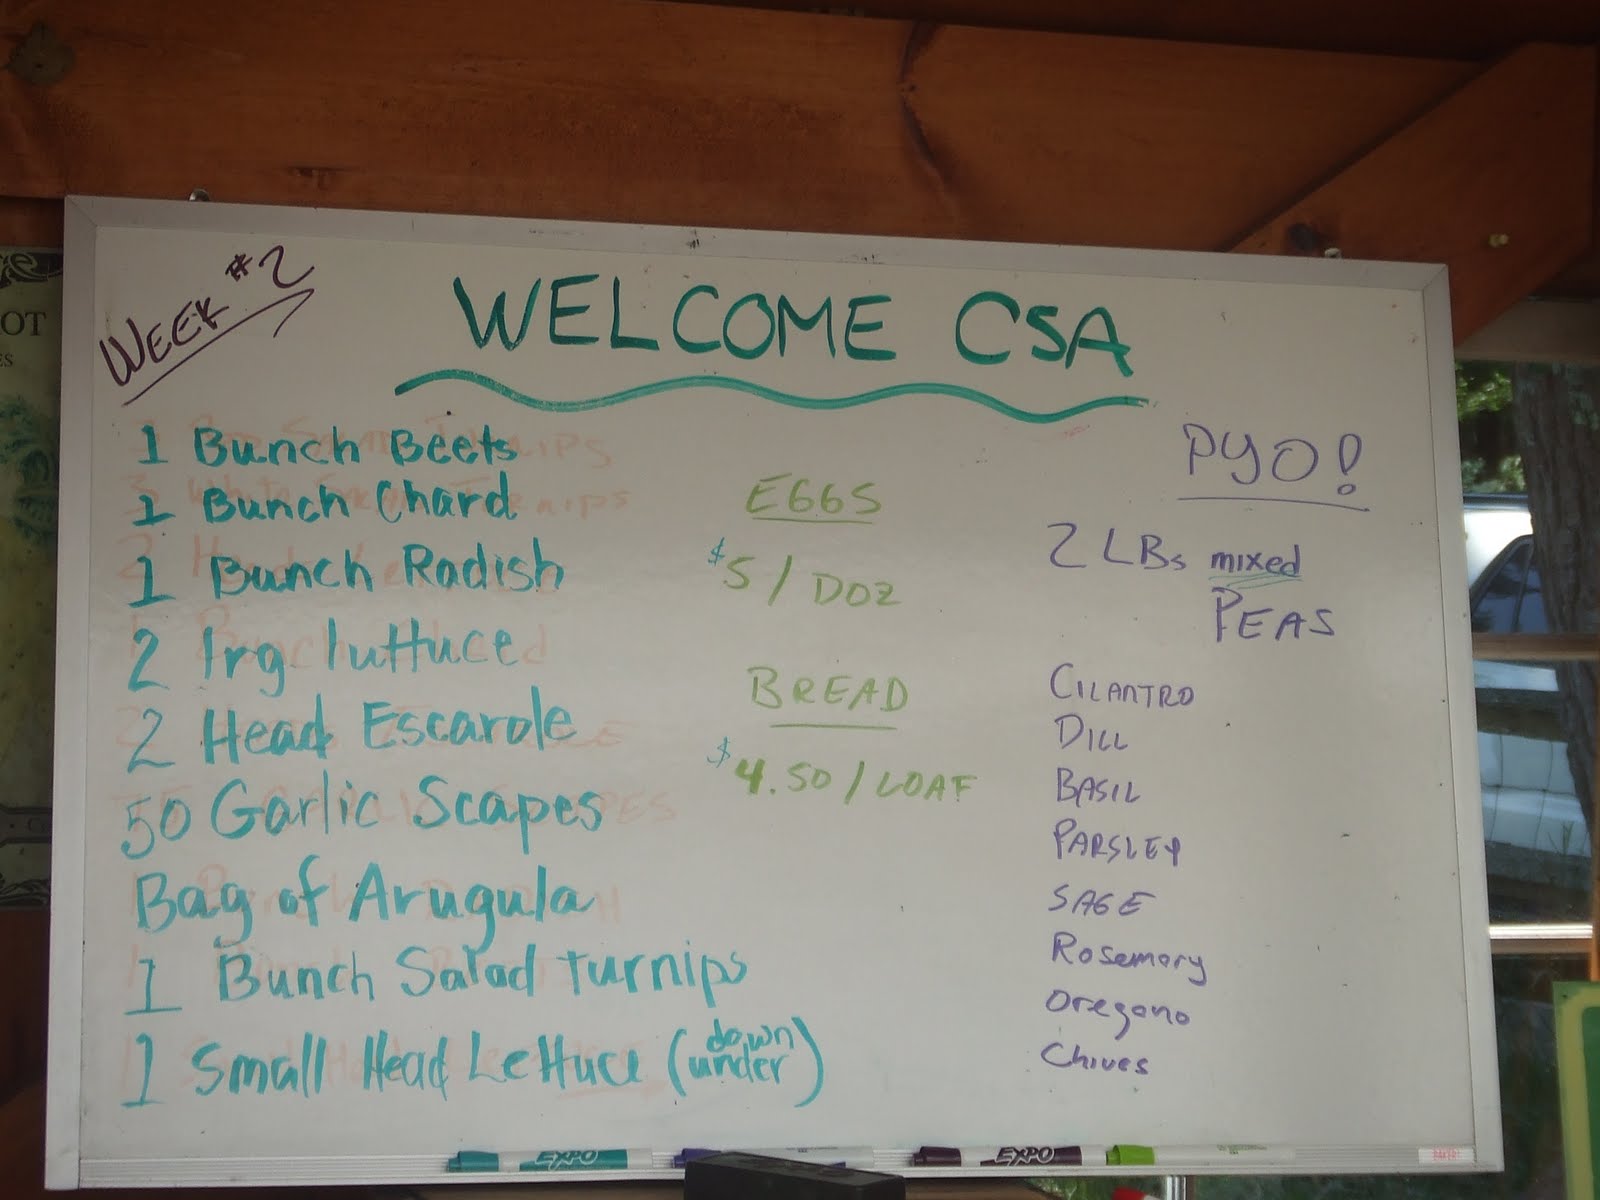 WEEK #2
WELCOME CSA
1 Bunch Beets
1 Bunch Chard
1 Bunch Radish
2 lrg luttuce
2 Head Escarole
50 Garlic Scapes
Bag of Arugula
1 Bunch Salad turnips
1 Small Head Lettuce (down under)
EGGS
$5 / DOZ
BREAD
$4.50 / LOAF
PYO!
2 LBs mixed
PEAS
CILANTRO
DILL
BASIL
PARSLEY
SAGE
Rosemary
Oregano
Chives
EXPO
EXPO
OT